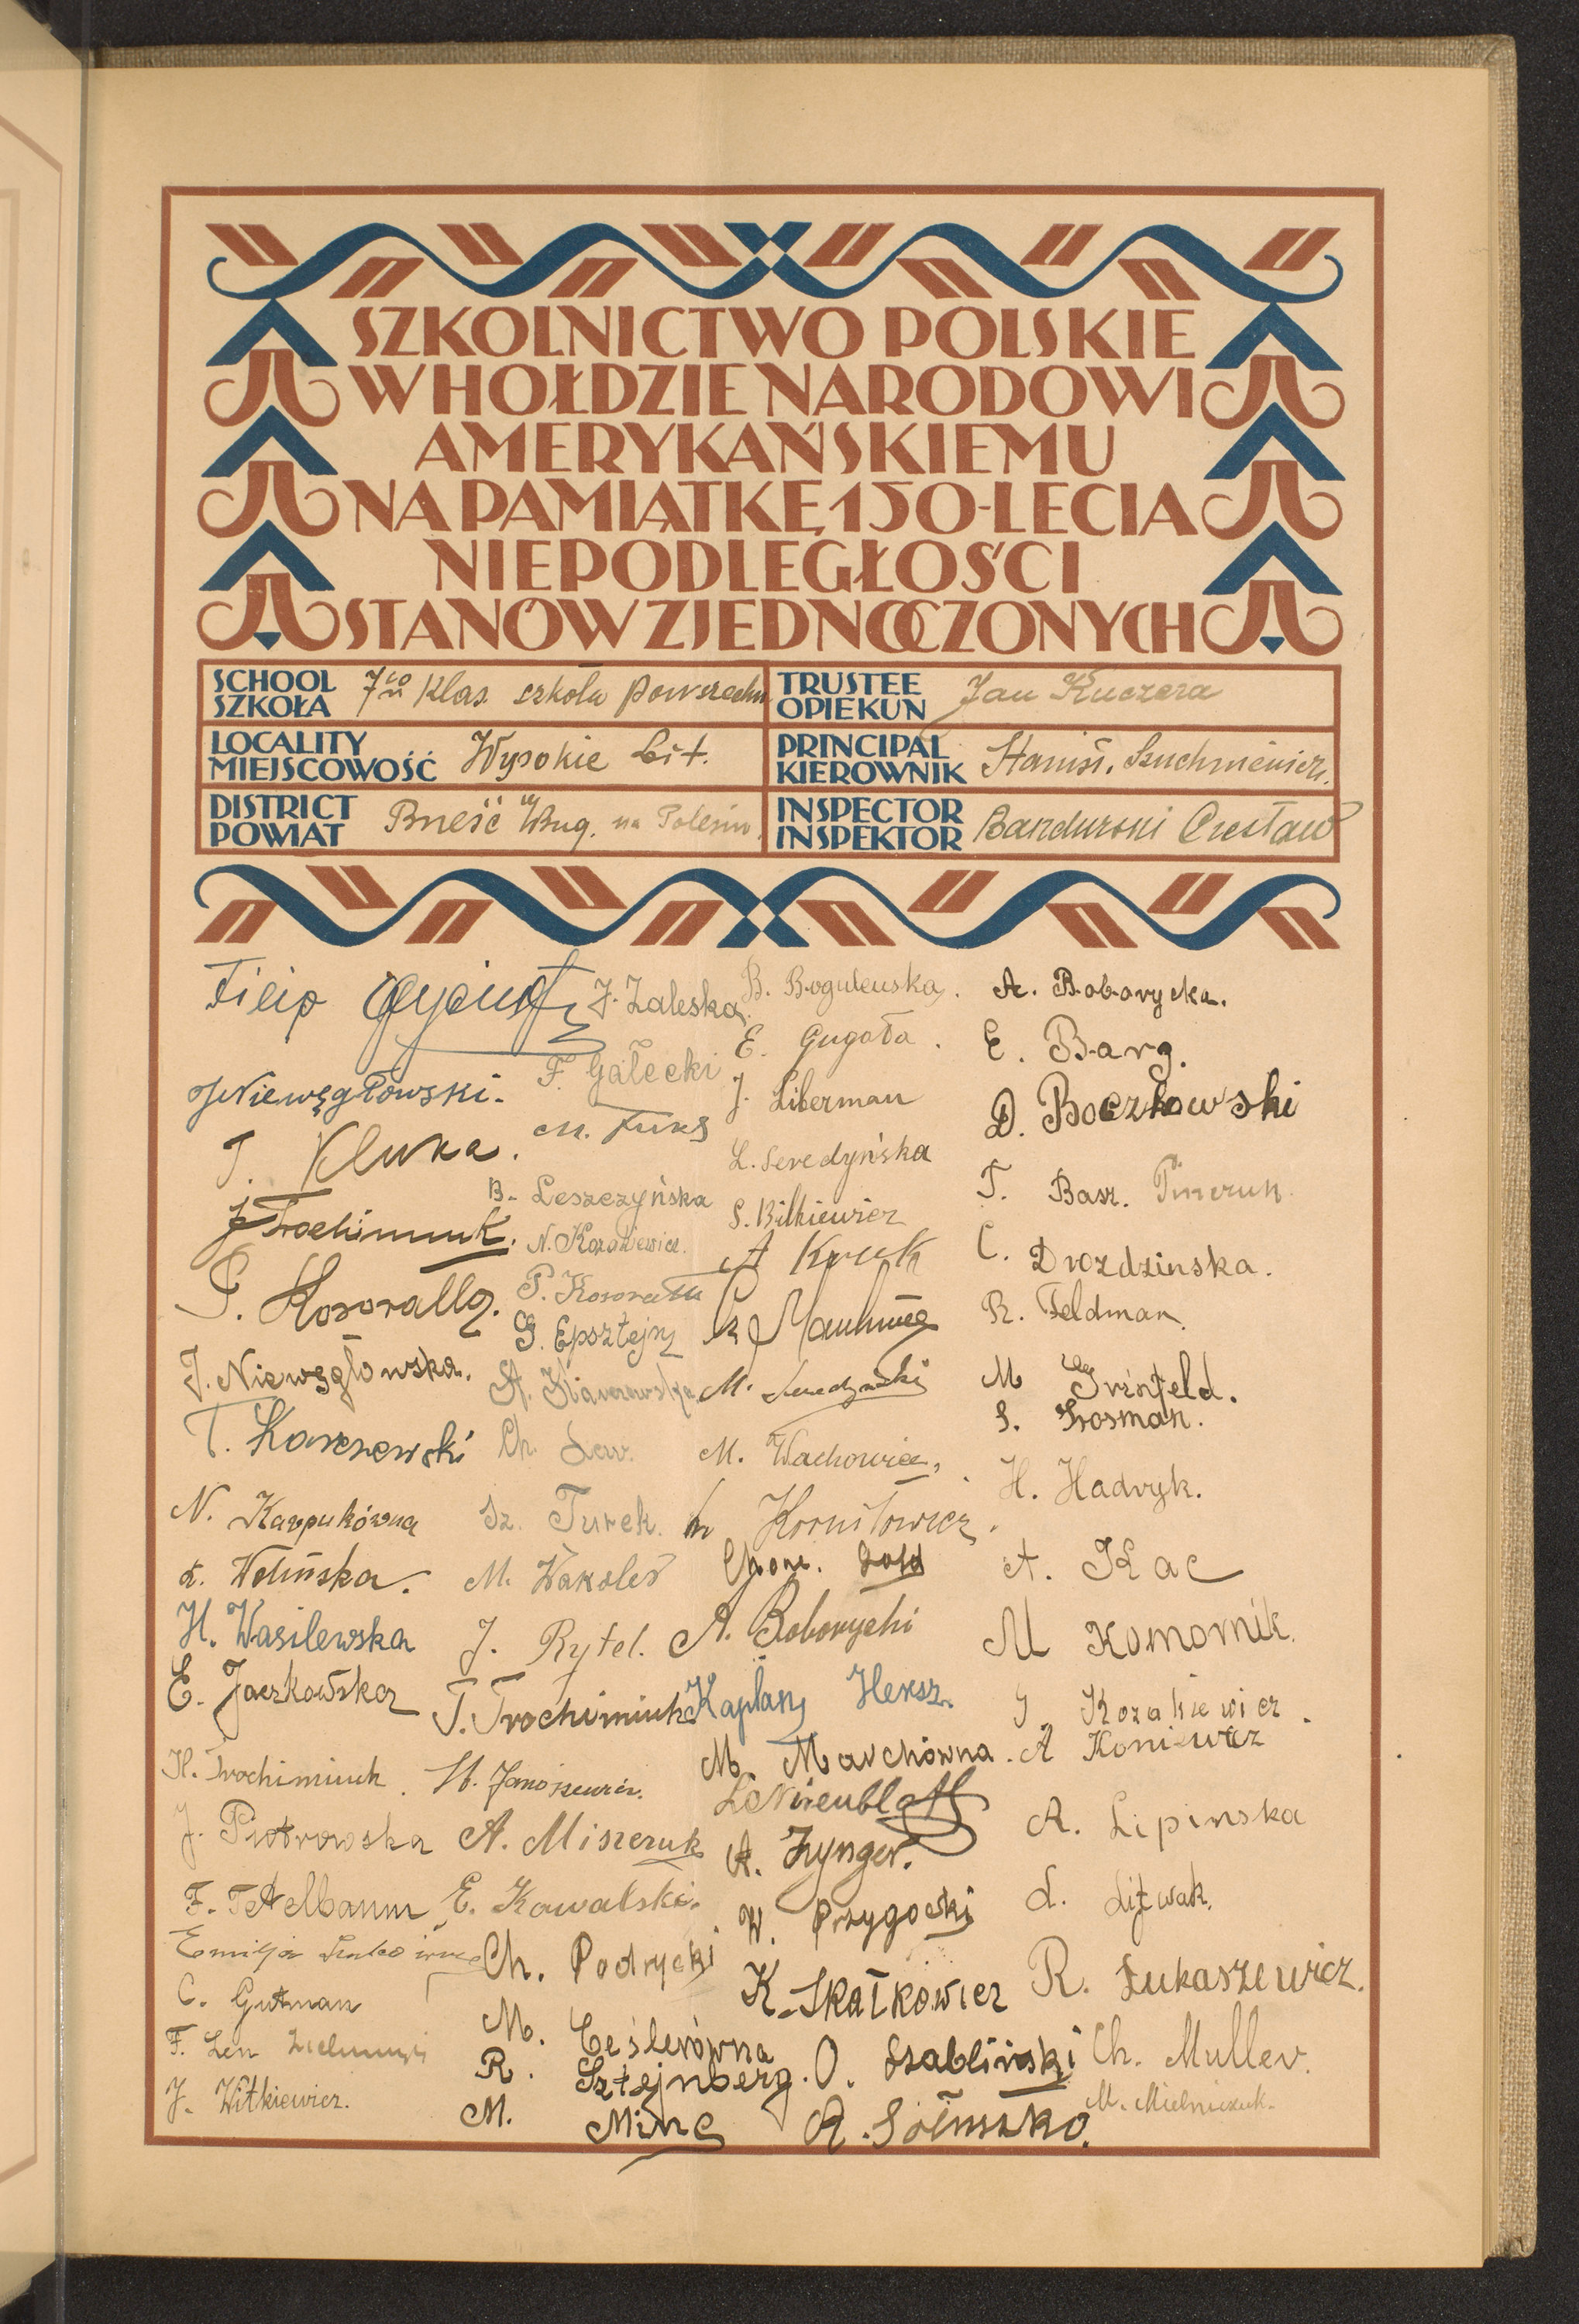 SZKOLNICTWO POLSKIE
W HOŁDZIE NARODOWI
AMERYKAŃSKIEMU
NA PAMIĄTKĘ 150-LECIA
NIEPODLEGŁOŚCI
STANÓW ZJEDNOCZONYCH
SCHOOL
SZKOŁA
7mio Klas. szkoła powszechn
TRUSTEE
OPIEKUN
Jan Kuczera
LOCALITY
MIEJSCOWOŚĆ
Wysokie Lit.
PRINCIPAL
KIEROWNIK
Stanisł.
DISTRICT
POWIAT
Brześć n/Bug. na Polesiu
INSPECTOR
INSPEKTOR
Bandurski Czesław
Filip
J. Niewęgłowski.
J. Kluka.
J. Trochimiuk.
J. Niewęgłowska.
T. Karczewski
N. Karpukówna
Ł. Wolińska.
H. Wasilewska
E. Jaczkowska
H. Trochimiuk.
J. Piotrowska
F. Tetelbaum
Emilja
C. Gutman
F. Len
J. Witkiewicz.
J. Zaleska
F. Gałecki
M. Fuks
B. Leszczyńska
N. Kozakiewicz.
G. Epsztejn
Ch. Law.
Sz. Turek.
M. Wakoler
J. Rytel.
T. Trochimiuk.
A. Miszeruk
E. Kowalski.
Ch. Podrycki
M. Ceślerówna
R. Sztejnberg.
M. Minc
B. Bogulewska.
E. Gugała.
J. Liberman
L. Seredyńska
S. Bilkiewicz
A Kruk
M. Seredyński
M. Wachowicz,
Korniłowicz.
Chone. Gold
A. Boborycki
Kaplan Hersz.
M. Marchówna.
L. Nirenblatt
A. Zynger.
W. Przygocki
K. Skałkowicz
O. Szabliński
A. Boborycka.
E. Barg.
D. Boczkowski
T. Basz.
C. Drozdzinska.
R. Feldman.
M Grinfeld.
S. Grosman.
H. Hadryk.
A. Kac
M Komornik.
G Kozakiewicz.
A Koniewicz
A. Lipinska
L. Litwak.
R. Łukaszewicz.
Ch. Muller.
M. Mielniczuk.